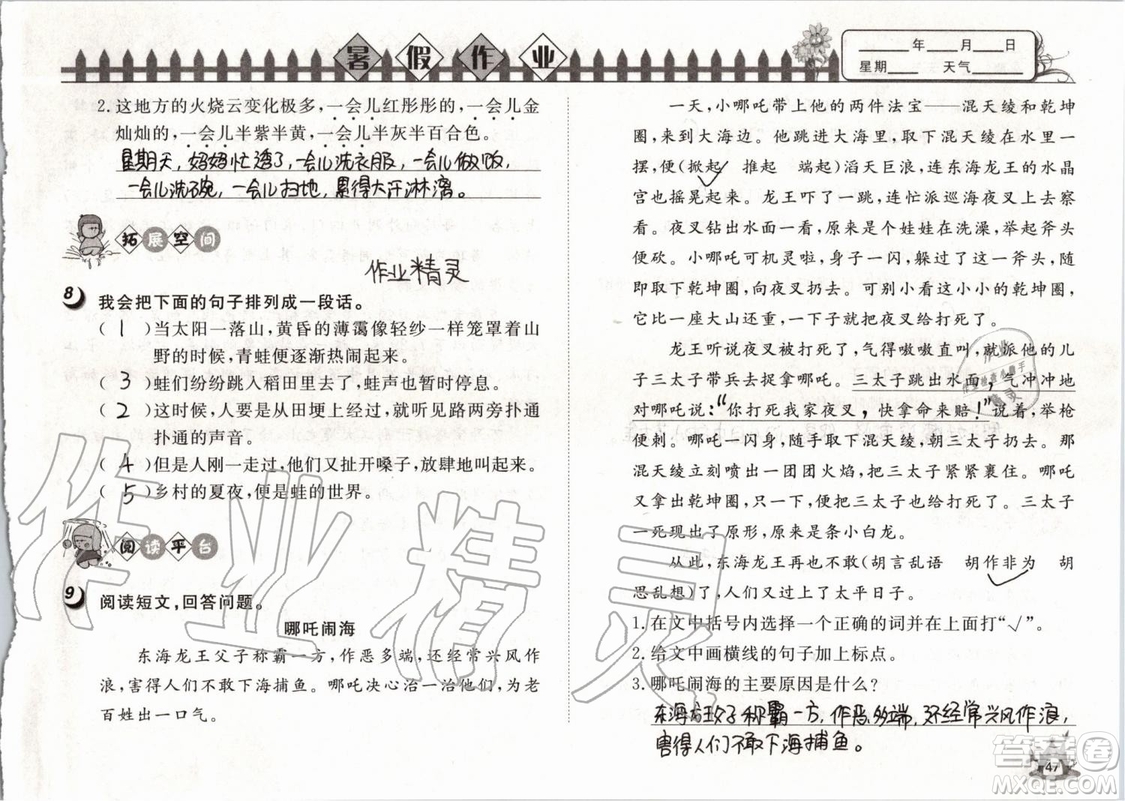 暑假作业
____年____月____日
星期____ 天气____
2.这地方的火烧云变化极多，一会儿红彤彤的，一会儿金
灿灿的，一会儿半紫半黄，一会儿半灰半百合色。
星期天，妈妈忙活了，一会儿洗衣服，一会儿做饭，
一会儿洗碗，一会儿扫地，累得大汗淋漓。
拓展空间
作业精灵
8 我会把下面的句子排列成一段话。
（1）当太阳一落山，黄昏的薄霭像轻纱一样笼罩着山
野的时候，青蛙便逐渐热闹起来。
（3）蛙们纷纷跳入稻田里去了，蛙声也暂时停息。
（2）这时候，人要是从田埂上经过，就听见路两旁扑通
扑通的声音。
（4）但是人刚一走过，他们又扯开嗓子，放肆地叫起来。
（5）乡村的夏夜，便是蛙的世界。
阅读平台
9 阅读短文，回答问题。
哪吒闹海
东海龙王父子称霸一方，作恶多端，还经常兴风作
浪，害得人们不敢下海捕鱼。哪吒决心治一治他们，给老
百姓出一口气。
一天，小哪吒带上他的两件法宝——混天绫和乾坤
圈，来到大海边。他跳进大海里，取下混天绫在水里一
摆，便（掀起√ 推起 端起）滔天巨浪，连东海龙王的水晶
宫也摇晃起来。龙王吓了一跳，连忙派巡海夜叉上去察
看。夜叉钻出水面一看，原来是个娃娃在洗澡，举起斧头
便砍。小哪吒可机灵啦，身子一闪，躲过了这一斧头，随
即取下乾坤圈，向夜叉扔去。可别小看这小小的乾坤圈，
它比一座大山还重，一下子就把夜叉给打死了。
龙王听说夜叉被打死了，气得嗷嗷直叫，就派他的儿
子三太子带兵去捉拿哪吒。三太子跳出水面，气冲冲地
对哪吒说：“你打死我家夜叉，快拿命来赔！”说着，举枪
便刺。哪吒一闪身，随即取下混天绫，向三太子扔去。那
混天绫立刻喷出一团团火焰，把三太子紧紧裹住。哪吒
又拿出乾坤圈，没想到乾坤圈把三太子也给打死了。三太子
一死现出了原形，原来是条小白龙。
从此，东海龙王再也不敢（胡言乱语 胡作非为√ 胡
思乱想）了，人们又过上了太平日子。
1.在文中括号内选择一个正确的词并在上面打“√”。
2.给文中画横线的句子加上标点。
3.哪吒闹海的主要原因是什么？
东海龙王父子称霸一方，作恶多端，还经常兴风作浪，
害得人们不敢下海捕鱼。
47
作业精灵
答案圈
MXQE.COM